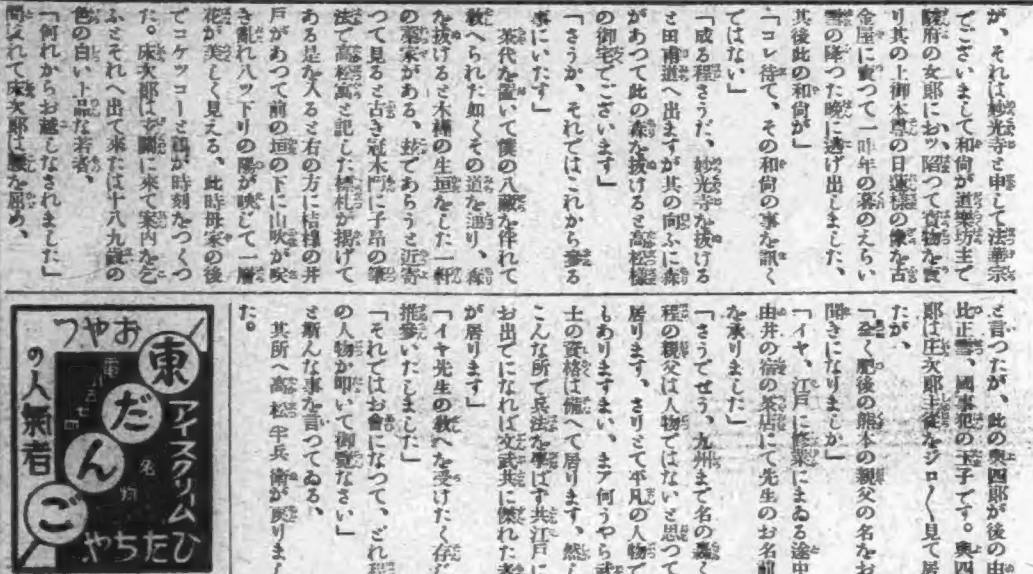 が、それは妙光寺と申して法華宗
でございまして和尚が道樂坊主で
駿府の女郎におッ陷つて寶物を賣
り其の上御本尊の日蓮様の像を古
金屋に賣つて一昨年の暮のえらい
雪の降つた晩に逃げ出しました、
其後此の和尚が」
「コレ待て、その和尚の事を訊く
ではない」
「成る程さうだ、妙光寺を抜ける
と田甫道へ出ますが其の向ふに森
があつて此の森を抜けると高松様
の御宅でございます」
「さうか、それではこれから參る
事にいたす」
茶代を置いて僕の八藏を伴れて
敎へられた如くその道を辿り、森
を抜けると木槿の生垣をした一軒
の藁家がある、玆であらうと近寄
つて見ると古き冠木門に子昂の筆
法で高松寓と記した標札が揭げて
ある是を入ると右の方に桔槹の井
戸があつて前の垣の下に山吹が咲
き亂れ八ツ下りの陽が映じて一層
花が美しく見える、此時母家の後
でコケツコーと鷄が時刻をつくつ
た。床次郎は玄關に來て案內を乞
ふとそれへ出て來たは十八九歲の
色の白い上品な若者、
「何れからお越しなされました」
問はれて床次郎は腰を屈め、
と言つたが、此の與四郎が後の由
比正雪、國事犯の下子です。與四
郎は庄次郎主從をジロ〱見て居
たが、
「全く肥後の熊本の親父の名をお
聞きになりましか」
「イヤ、江戶に修業にまゐる途中
由井の宿の茶店にて先生のお名前
を承りました」
「さうでせう、九州まで名の轟く
程の親父は人物ではないと思つて
居ります、さりとて平凡の人物で
もありますまい、まア何うやら武
士の資格は備へて居ります、然し
こんな所で兵法を學ばす共江戶に
お出でになれば文武共に傑れた者
が居ります」
「イヤ先生の敎へを受けたく存じ
推參いたしました」
「それではお會になつて、どれ程
の人物か叩いて御覽なさい」
と斯んな事を言つてゐる、
其所へ高松半兵衛が戾りまし
た。
おやつ
東だんご
アイスクリーム
ひたちや
の人氣者